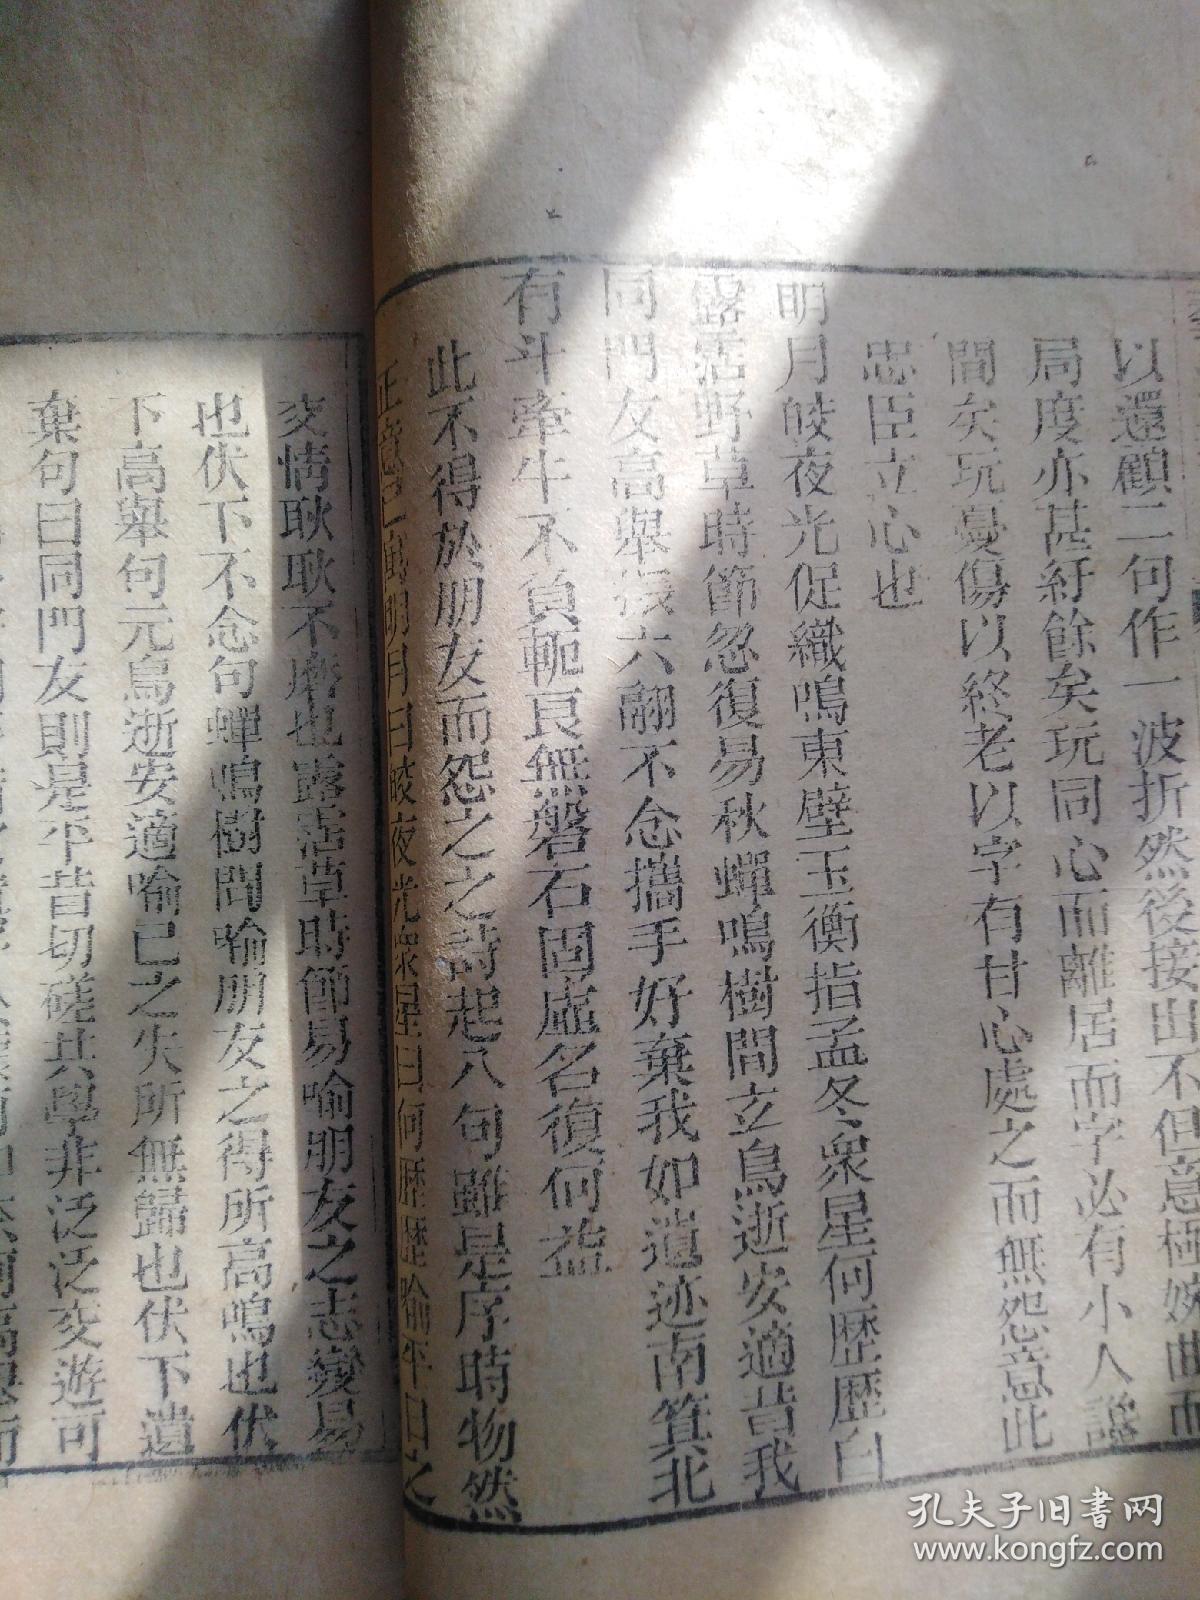 以還顧二句作一波折然後接出不但意極婉曲而
局度亦甚紆餘矣玩同心而離居而字必有小人讒
間矣玩憂傷以終老以字有甘心處之而無怨意此
忠臣立心也
明月皎夜光促織鳴東壁玉衡指孟冬衆星何歷歷白
露沾野草時節忽復易秋蟬鳴樹間玄鳥逝安適昔我
同門友高舉振六翮不念攜手好棄我如遺迹南箕北
有斗牽牛不負軛良無磐石固虛名復何益
此不得於朋友而怨之之詩起八句雖是序時物然
正意已寓明月曰皎夜光衆星曰何歷歷喻平日之
交情耿耿不磨也露沾草時節易喻朋友之志變易
也伏下不念句蟬鳴樹間喻朋友之得所高鳴也伏
下高舉句元鳥逝安適喻已之失所無歸也伏下遺
棄句曰同門友則是平昔切磋共學非泛泛交遊可
孔夫子旧书网
www.kongfz.com